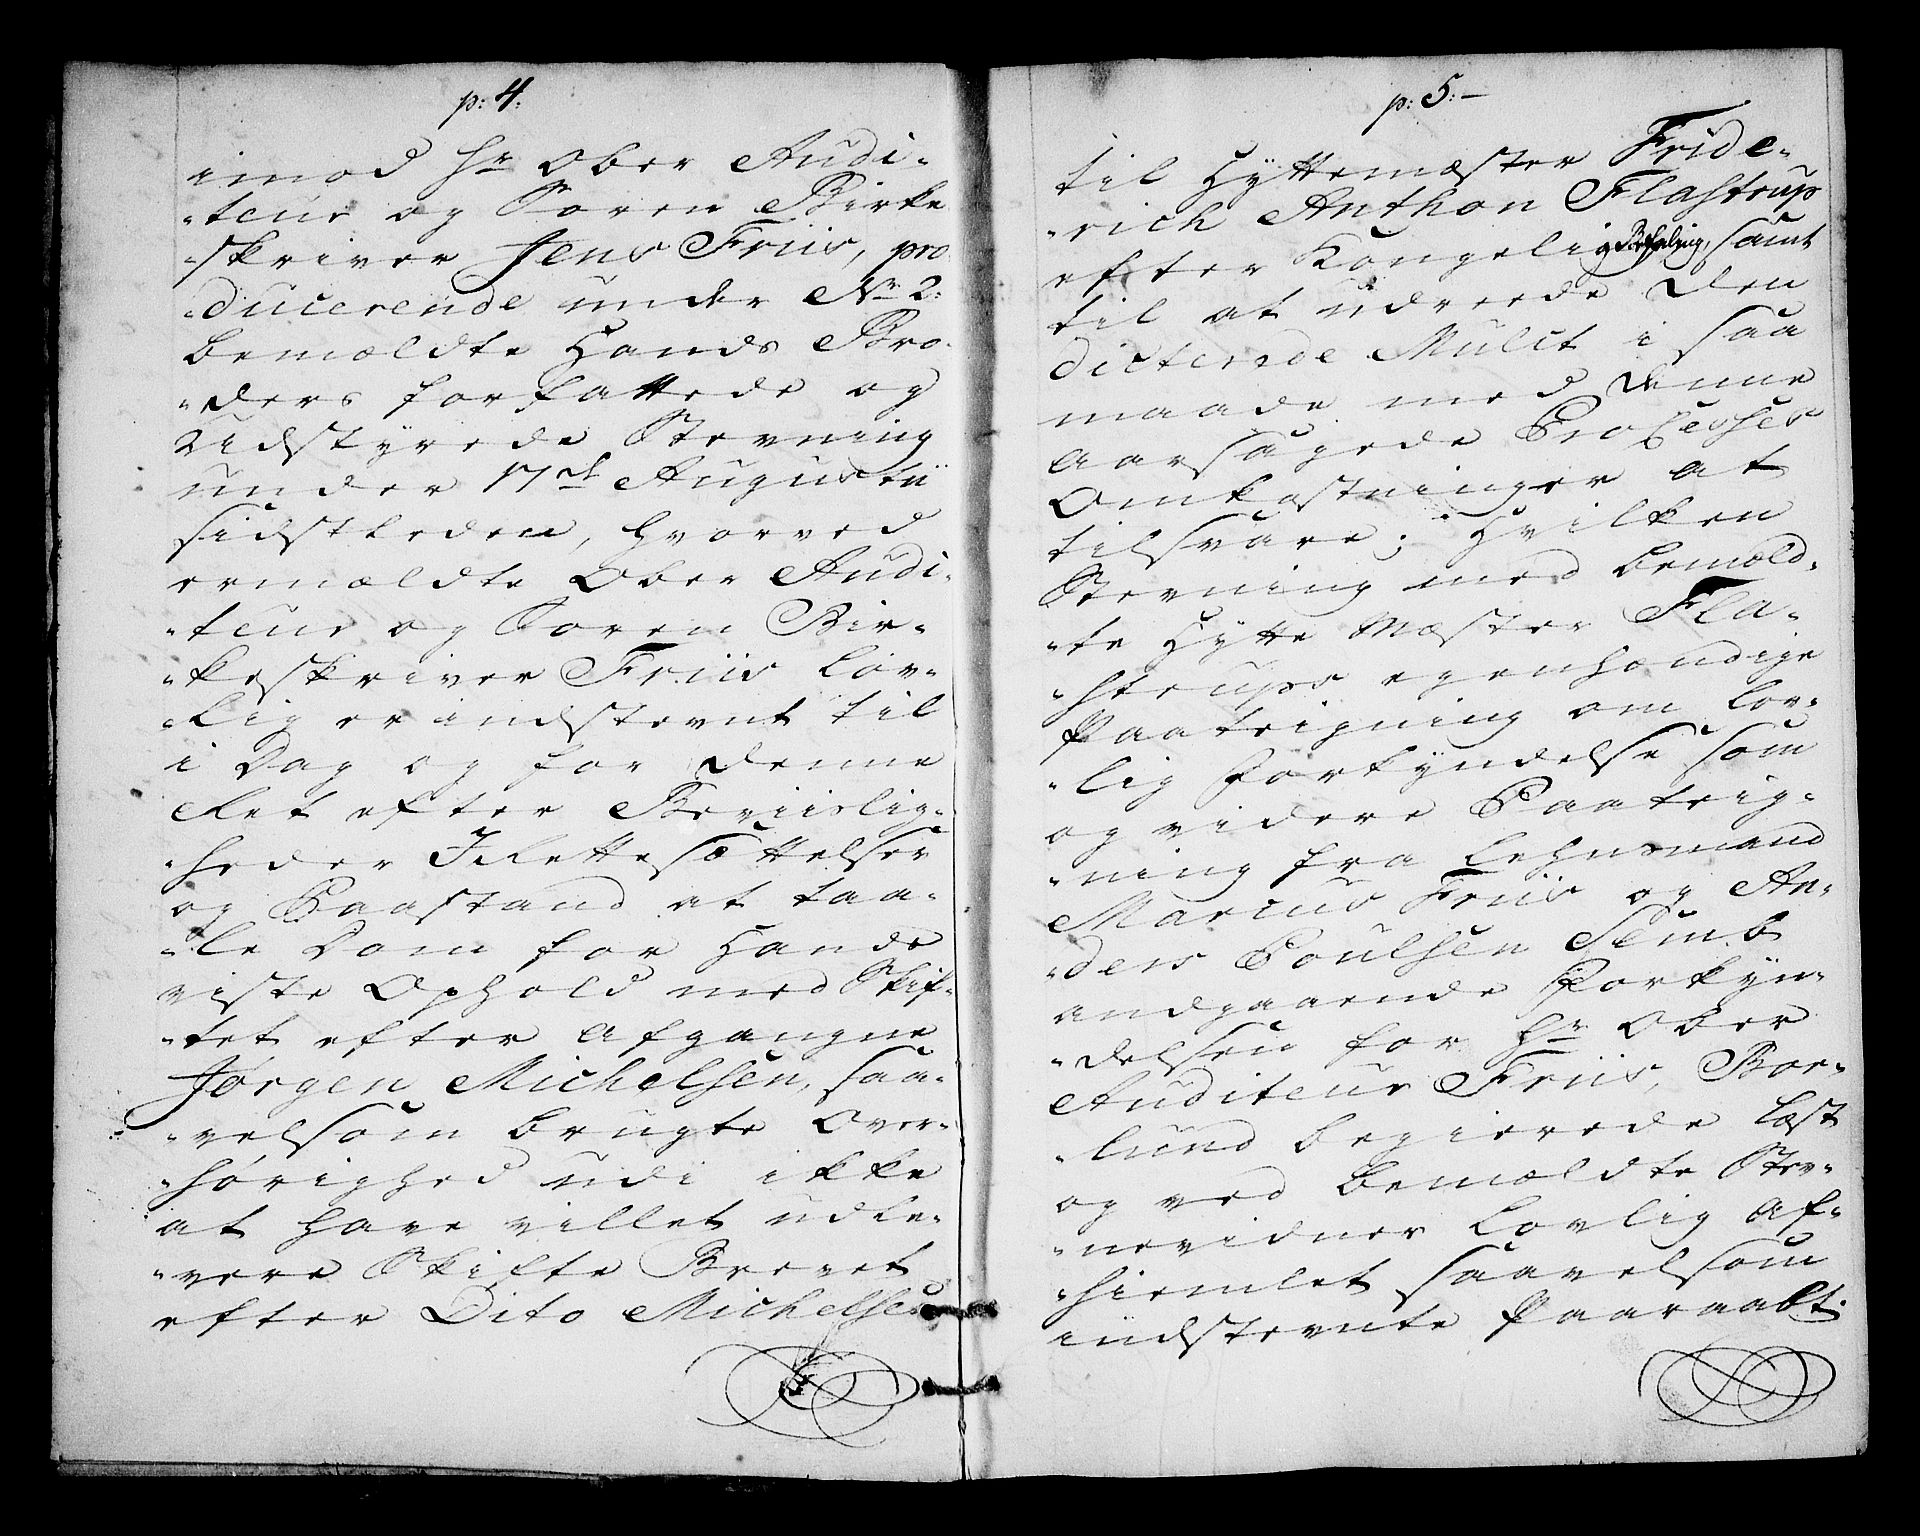 p: 4.
imod Hr Ober Audi-
-teur og Soren Birke
-skriver Jens Friis, pro-
-ducerende under No 2:
bemældte Hands Bro-
-ders forfattede og
Udstyrede Stevning
under 17de Augustii
sidstleden, hvorved
ermældte Ober Audi-
-teur og Soren Bir-
-keskriver Friis lov-
-lig er indstevnt til
i Dag og for denne
Ret efter Beviislig-
-heder Irettesættelser
og Paastand at taa-
-le Dom for Hands
viste Ophold med Skif-
-tet efter afgangne
Jørgen Michelsen, saa-
-velsom brugte Over-
-hørighed udi ikke
at have villet udle-
-vere Skifte Brevet
efter Dito Michelsen
p: 5:-
til Hyttemæster Fride-
-rich Anthon Flastrup
efter Kongelig Befaling, samt
til at udreede den
dicterede Mulct i saa
maade med denne
aarsagede Processes
Omkostninger at
tilsvare; Hvilken
Stevning med bemæld-
-te Hytte Mæster Fla-
-strups egenhændige
Paateigning om lov-
-lig Forkyndelse som
og videre Paateig-
-ning fra Lehnsmand
Marcus Friis og An-
-ders Poulsen Semb
andgaaende Forkyn-
-delsen for Hr Ober
Auditeur Friis, Bor-
-lund begierede læst
og ved bemældte Stev-
-nevidner lovlig af-
-hiemlet saavelsom
indstevnte paaraabt.